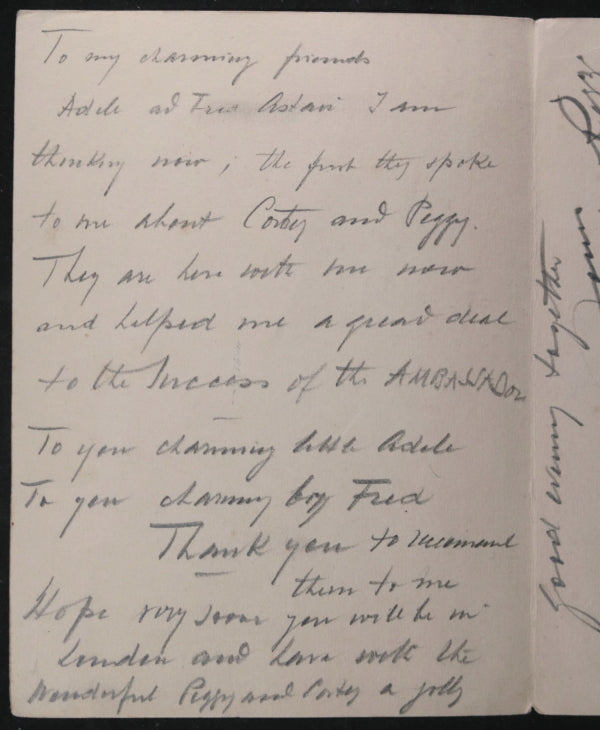 To my charming friends
Adele ad Fred Astair I am
thinking now, the first they spoke
to me about Cortez and Peggy.
They are here with me now
and helped me a great deal
to the Success of the AMBASSADOR
To you charming little Adele
To you charming boy Fred
Thank you to recomend
them to me
Hope very soon you will be in
London and have with the
Wonderful Peggy and Cortez a jolly
good evening together
Yours